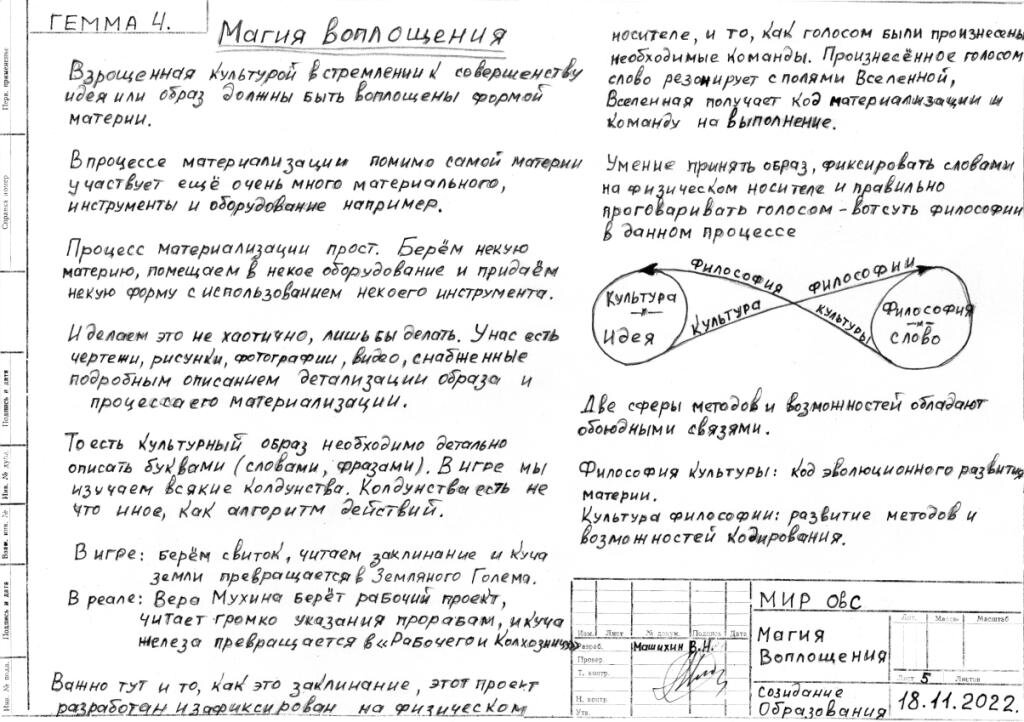 ГЕММА 4.
Магия воплощения
Взрощенная культурой в стремлении к совершенству
идея или образ должны быть воплощены формой
материи.
В процессе материализации помимо самой материи
участвует ещё очень много материального,
инструменты и оборудование например.
Процесс материализации прост. Берём некую
материю, помещаем в некое оборудование и придаём
некую форму с использованием некоего инструмента.
И делаем это не хаотично, лишь бы делать. У нас есть
чертежи, рисунки, фотографии, видео, снабженные
подробным описанием детализации образа и
процесса его материализации.
То есть культурный образ необходимо детально
описать буквами (словами, фразами). В игре мы
изучаем всякие колдунства. Колдунства есть не
что иное, как алгоритм действий.
В игре: берём свиток, читаем заклинание и куча
земли превращается в Земляного Голема.
В реале: Вера Мухина берёт рабочий проект,
читает громко указания прорабам, и куча
железа превращается в «Рабочего и Колхозницу»
Важно тут и то, как это заклинание, этот проект
разработан и зафиксирован на физическом
носителе, и то, как голосом были произнесены
необходимые команды. Произнесённое голосом
слово резонирует с полями Вселенной,
Вселенная получает код материализации и
команду на выполнение.
Умение принять образ, фиксировать словами
на физическом носителе и правильно
проговаривать голосом - вот суть философии
в данном процессе
Культура
Идея
Философия культуры
Культура философии
Философия
слово
Две сферы методов и возможностей обладают
обоюдными связями.
Философия культуры: код эволюционного развития
материи.
Культура философии: развитие методов и
возможностей кодирования.
Перв. применение
Справки номер
Подпись и дата
Инв. № дубл.
Взам. инв. №
Подпись и дата
Инв. № подл.
Изм. Лист № докум. Подпись Дата
Разраб. Машихин В.Н.
Провер
Т. контр.
Н. контр.
Утв.
МИР ОВС
Магия
Воплощения
Лит. Масса Масштаб
Лист 5 Листов
Созидание
Образования
18.11.2022.